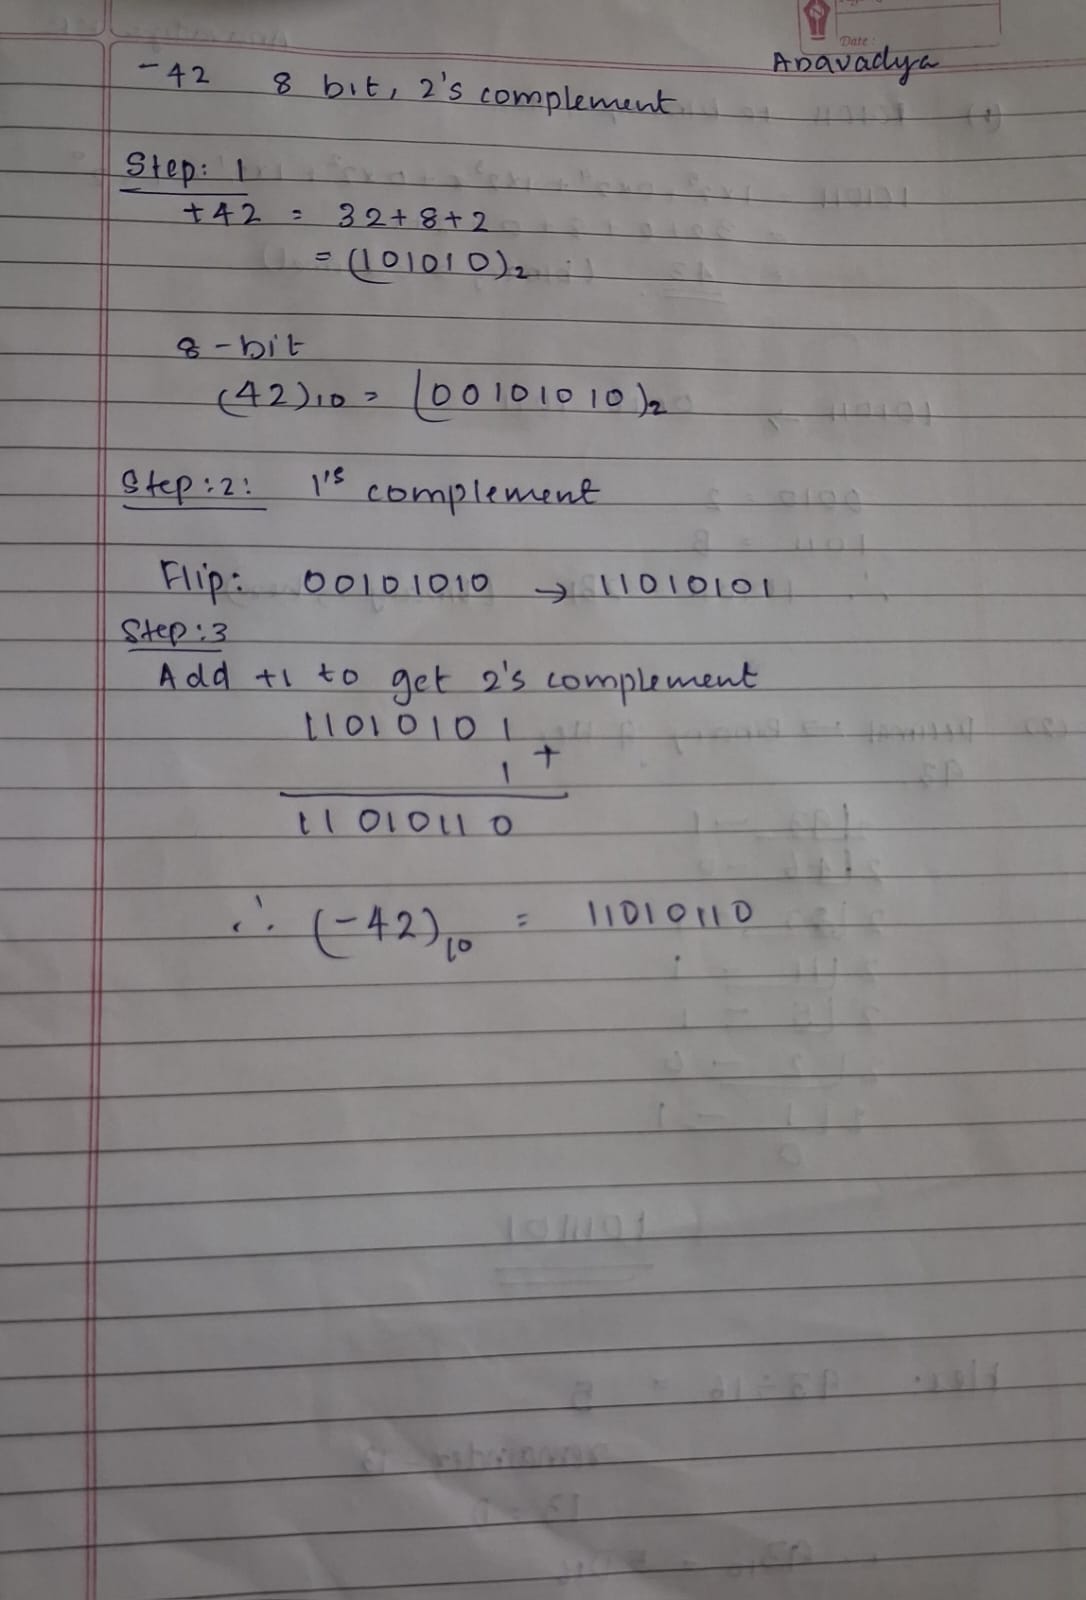 Date:
Anavadya
-42 8 bit, 2's complement
Step: 1
+42 = 32+8+2
= (101010)₂
8-bit
(42)₁₀ = (00101010)₂
Step:2: 1's complement
Flip: 00101010 → 11010101
Step:3
Add +1 to get 2's complement
11010101
1 +
11010110
∴ (-42)₁₀ = 11010110